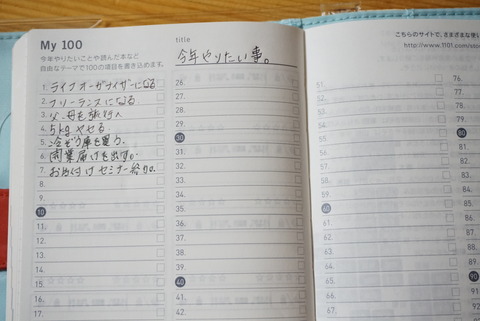 My 100
今年やりたいことや読んだ本など
自由なテーマで100の項目を書き込めます。
title
今年やりたい事。
こちらのサイトで、さまざまな使い
http://www.1101.com/sto
1. ライフオーガナイザーになる
2. フリーランスになる
3. 父、母を旅行へ
4. 5kgやせる
5. 冷ぞう庫を買う。
6. 開業届けを出す。
7. お片付けセミナー
8.
9.
10
11.
12.
13.
14.
15.
16.
17.
26.
27.
28.
29.
30
31.
32.
33.
34.
35.
36.
37.
38.
39.
40
41.
42.
51.
52.
53.
54.
55.
56.
57.
58.
59.
60
61.
62.
63.
64.
65.
66.
67.
76.
77.
78.
79.
80
81.
82.
83.
84.
85.
86.
87.
88.
89.
90
91.
92.